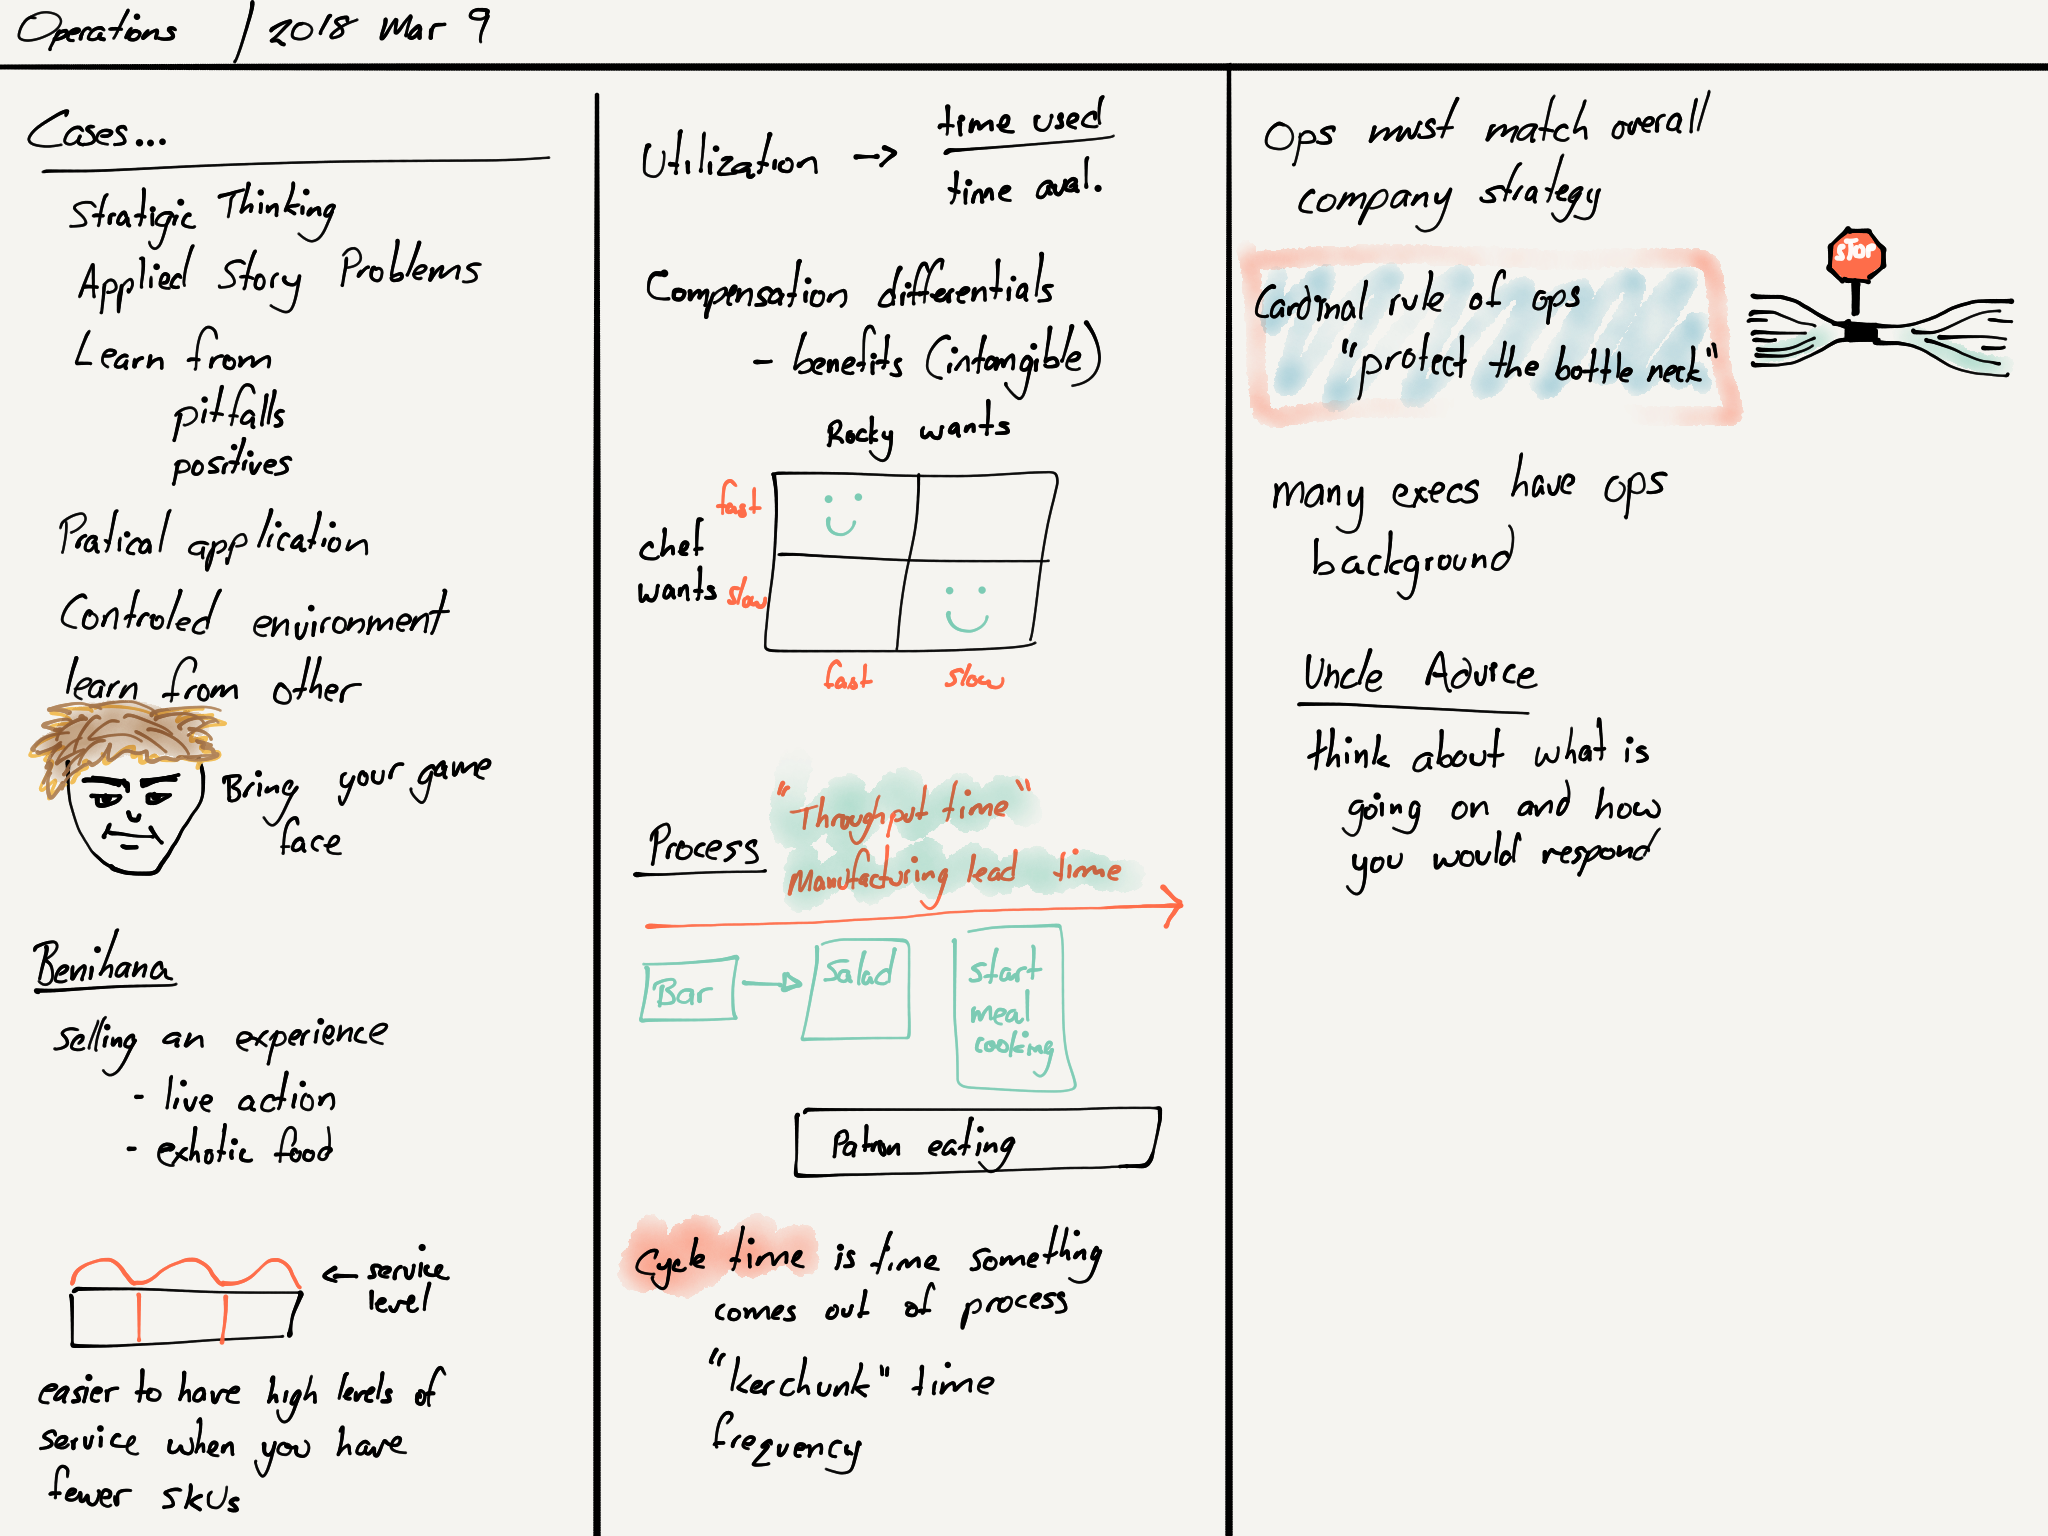 Operations / 2018 Mar 9
Cases...
Stratigic Thinking
Applied Story Problems
Learn from
pitfalls
positives
Pratical application
Controled environment
learn from other
Bring your game
face
Benihana
Selling an experience
- live action
- exhotic food
← service
level
easier to have high levels of
service when you have
fewer SKUs
Utilization → time used
time aval.
Compensation differentials
- benefits (intangible)
Rocky wants
fast
chef
wants slow
fast slow
Process
"Throughput time"
Manufacturing lead time
Bar
Salad
start
meal
cooking
Patron eating
Cycle time is time something
comes out of process
"kerchunk" time
frequency
Ops must match overall
company strategy
STOP
Cardinal rule of ops
"protect the bottle neck"
many execs have ops
background
Uncle Advice
think about what is
going on and how
you would respond